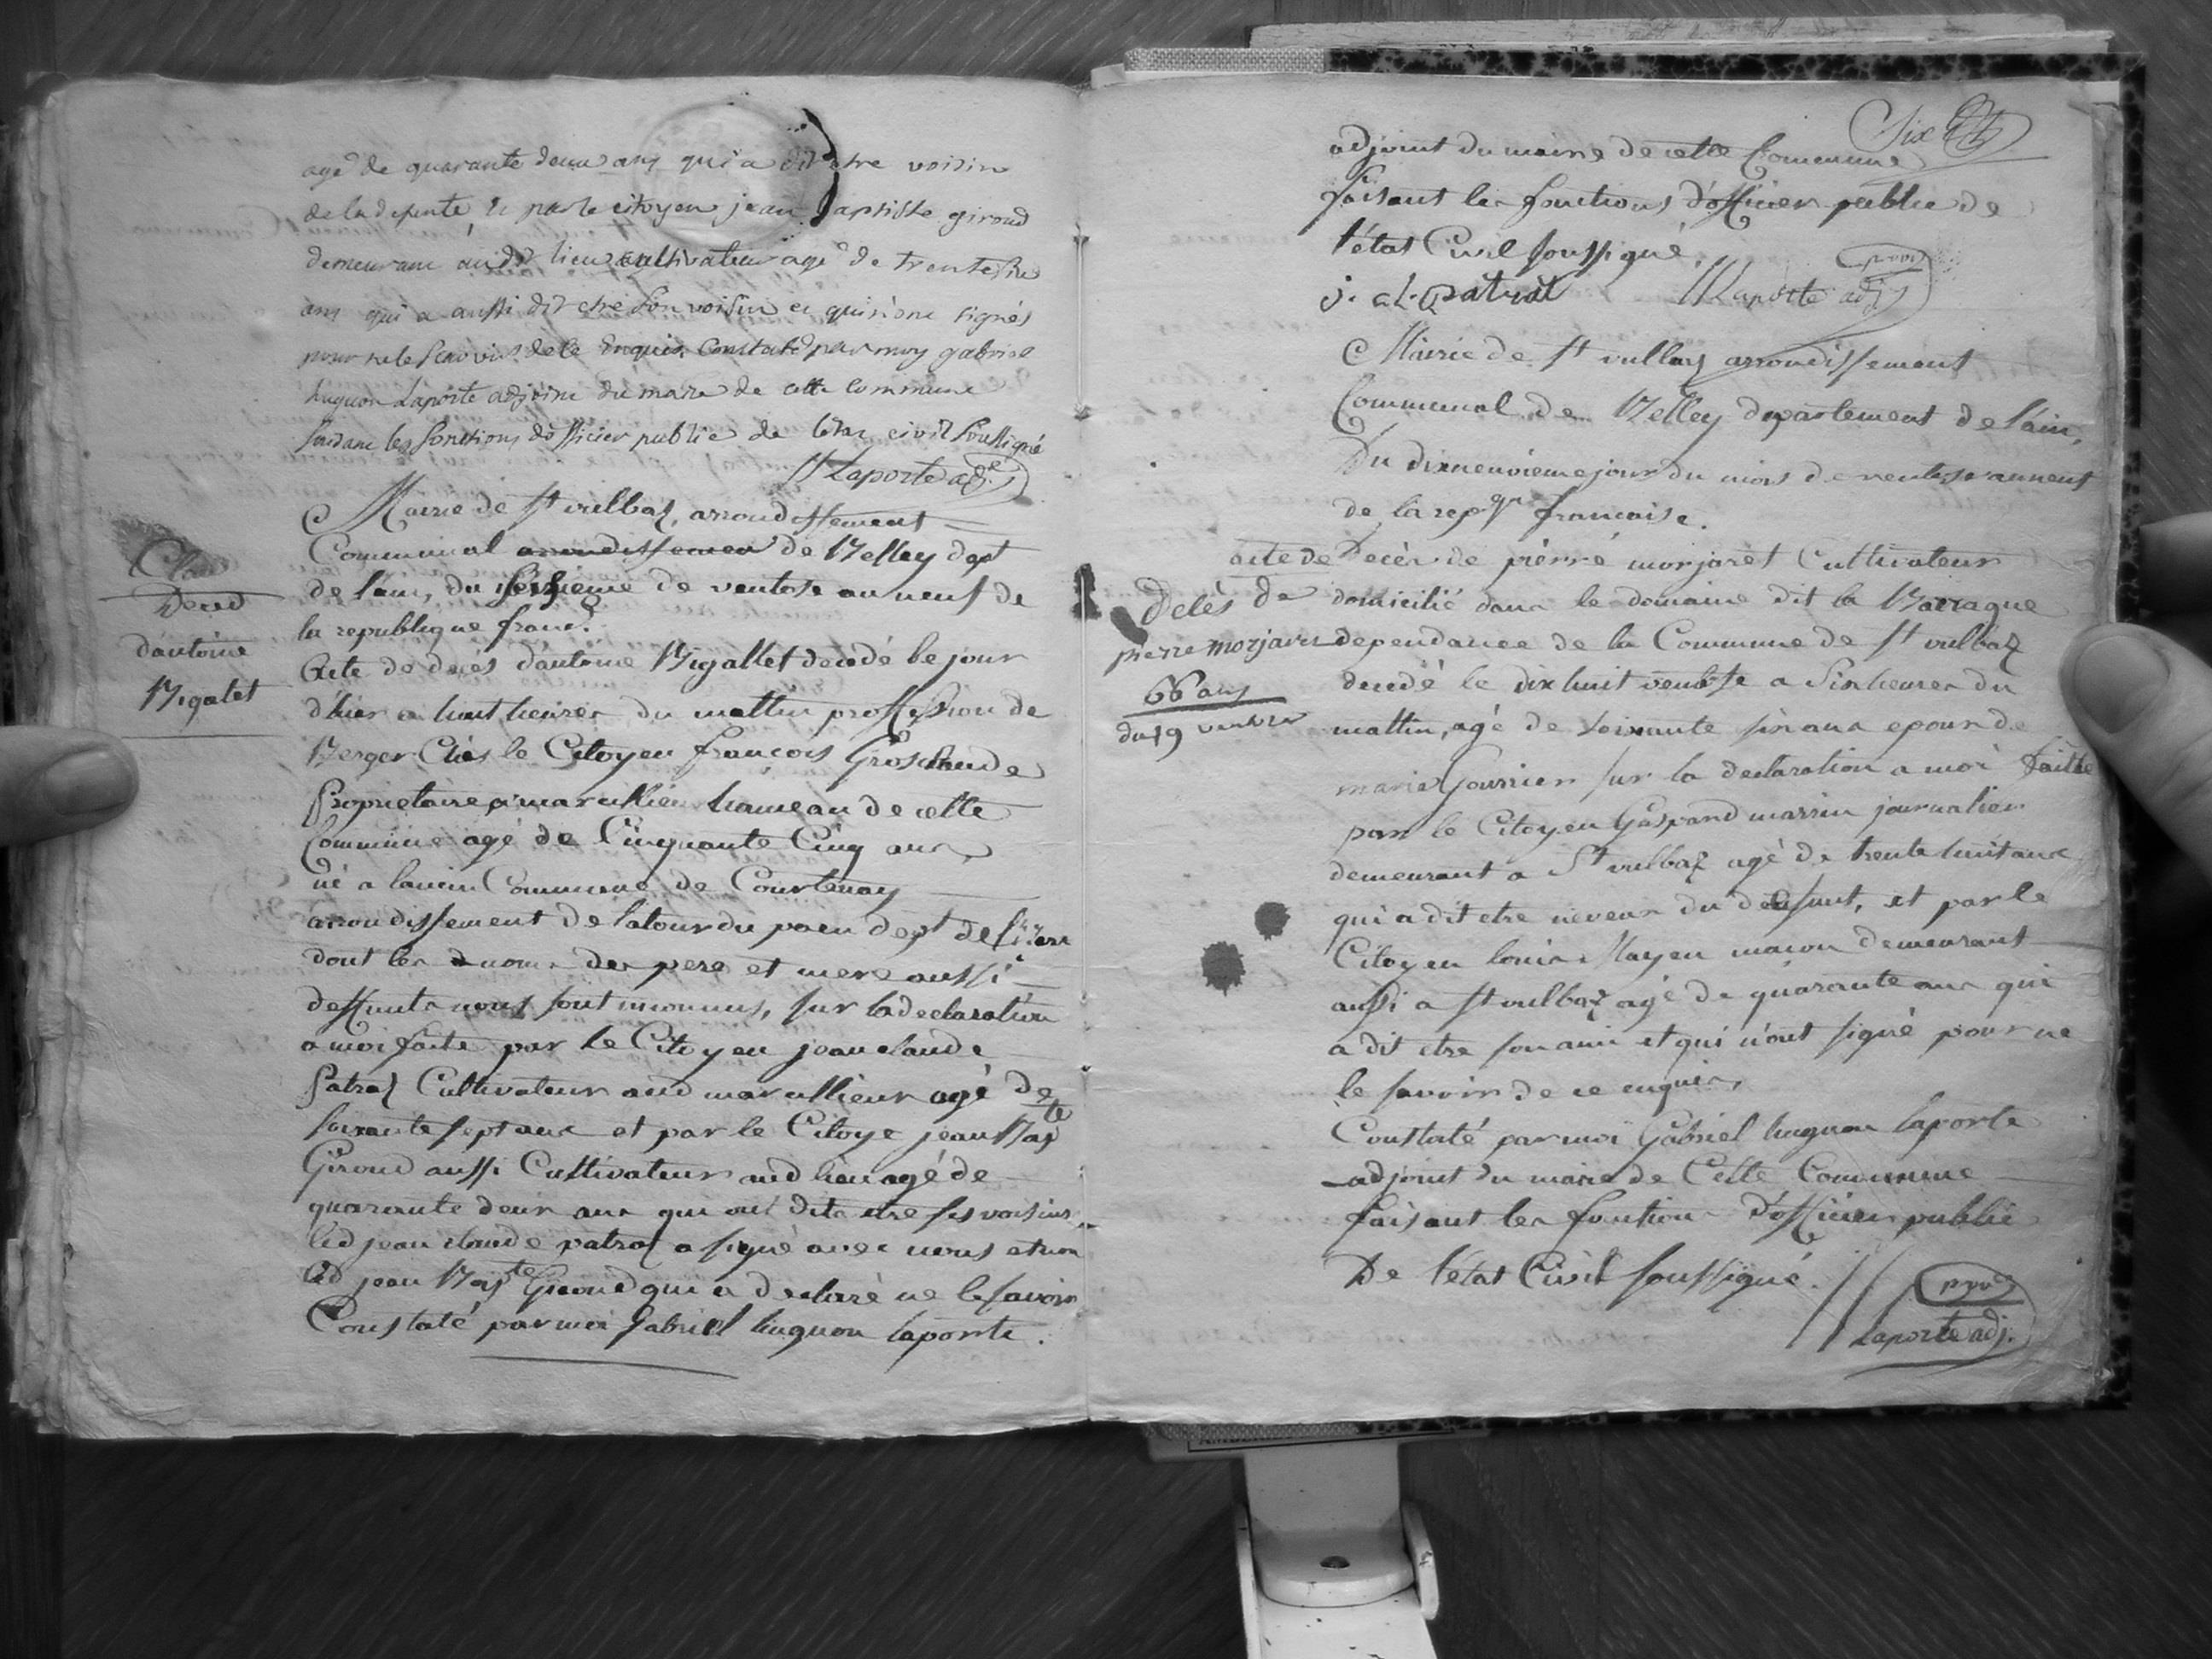 agé de quarante deux ans qui a dit etre voisin
de la defunte et par le citoyen jean Baptiste giroud
demeurant audit lieu cultivateur agé de trente six
ans qui a aussi dit etre son voisin et qui n'ont signés
pour ne le scavoir de ce Enquis Constaté par moy gabriel
huguon Laporte adjoint du maire de cette Commune
faisant les fonctions dofficier public de letat civil soussigné
Laporte adj.
Mairie de St vulbas, arrondissement
Communal arrondissement de Belley dept
de l'ain, du seizieme de ventose an neuf de
la republique franc.
Acte de deces d'antoine Bigallet decedé le jour
d'hier a huit heures du mattin proffession de
Berger Chés le Citoyen françois Grosclaude
Proprietaire a marcillieu hameau de cette
Commune agé de Cinquante Cinq ans,
né a Commune de Courtenay
arrondissement de latour du pain dept de l'izere
dont les noms des pere et mere aussi
deffunts nous sont inconnus, sur la declaration
a moi faite par le Citoyen jean claude
Patral Cultivateur aud marcillieux agé de
soixante sept ans et par le Citoye jean Bapte
Giroud aussi Cultivateur aud lieu agé de
quarante deux ans qui ont dits etre ses voisins
led jean claude patral a signé avec nous et non
led jean Bapte Giroud qui a declaré ne le savoir
Constaté par moi Gabriel huguon laporte.
Deced
d'antoine
Bigalet
Six
adjoint du maire de cette Commune
faisant les fonctions d'officier public de
l'état Civil soussigné.
j. cl. patral Laporte adj
Mairie de St vulbas arrondissement
Communal de Belley departement de l'ain,
Du dixneuvieme jour du mois de ventose an neuf
de la repque francaise.
acte de Decès de pierre morjaret Cultivateur
domicilié dans le domaine dit la Barraque
dependance de la Commune de St vulbaz
decedé le dix huit ventose a Six heures du
mattin, agé de soixante six ans epoux de
marie Gourrier sur la declaration a moi faitte
par le Citoyen Gaspard marrin journalier
demeurant a St vulbaz agé de trente huit ans
qui a dit etre neveux du defunt, et par le
Citoyen louis Mayen macon demeurant
aussi a St vulbaz agé de quarante ans qui
a dit etre son ami et qui n'ont signé pour ne
le savoir de ce enquis,
Constaté par moi Gabriel huguon laporte
adjoint du maire de Cette Commune
faisant les fonctions D'officier public
De l'état Civil soussigné.
Laporte adj.
Decès de
pierre morjaret
66 ans
du 19 ventose